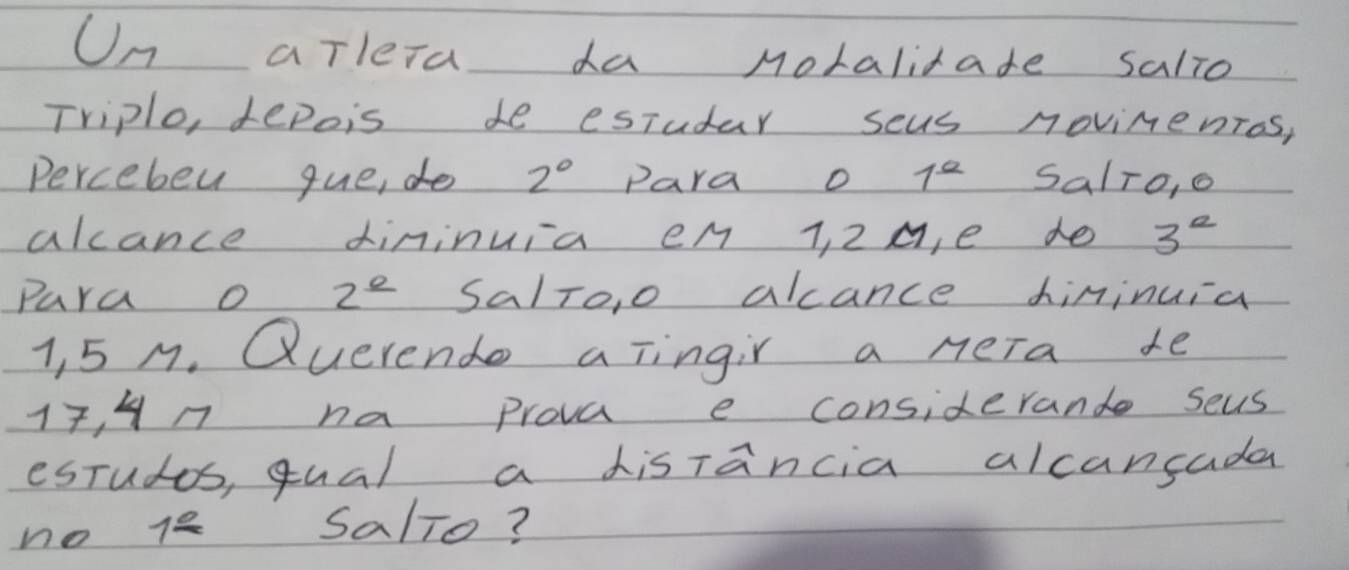 Um atleta da modalidade salto
triplo, depois de estudar seus movimentos,
percebeu que, do 2º para o 1º salto, o
alcance diminuia em 1,2 m, e do 3º
para o 2º salto, o alcance diminuia
1,5 m. Querendo atingir a meta de
17,4 m na prova e considerando seus
estudos, qual a distância alcançada
no 1º salto?